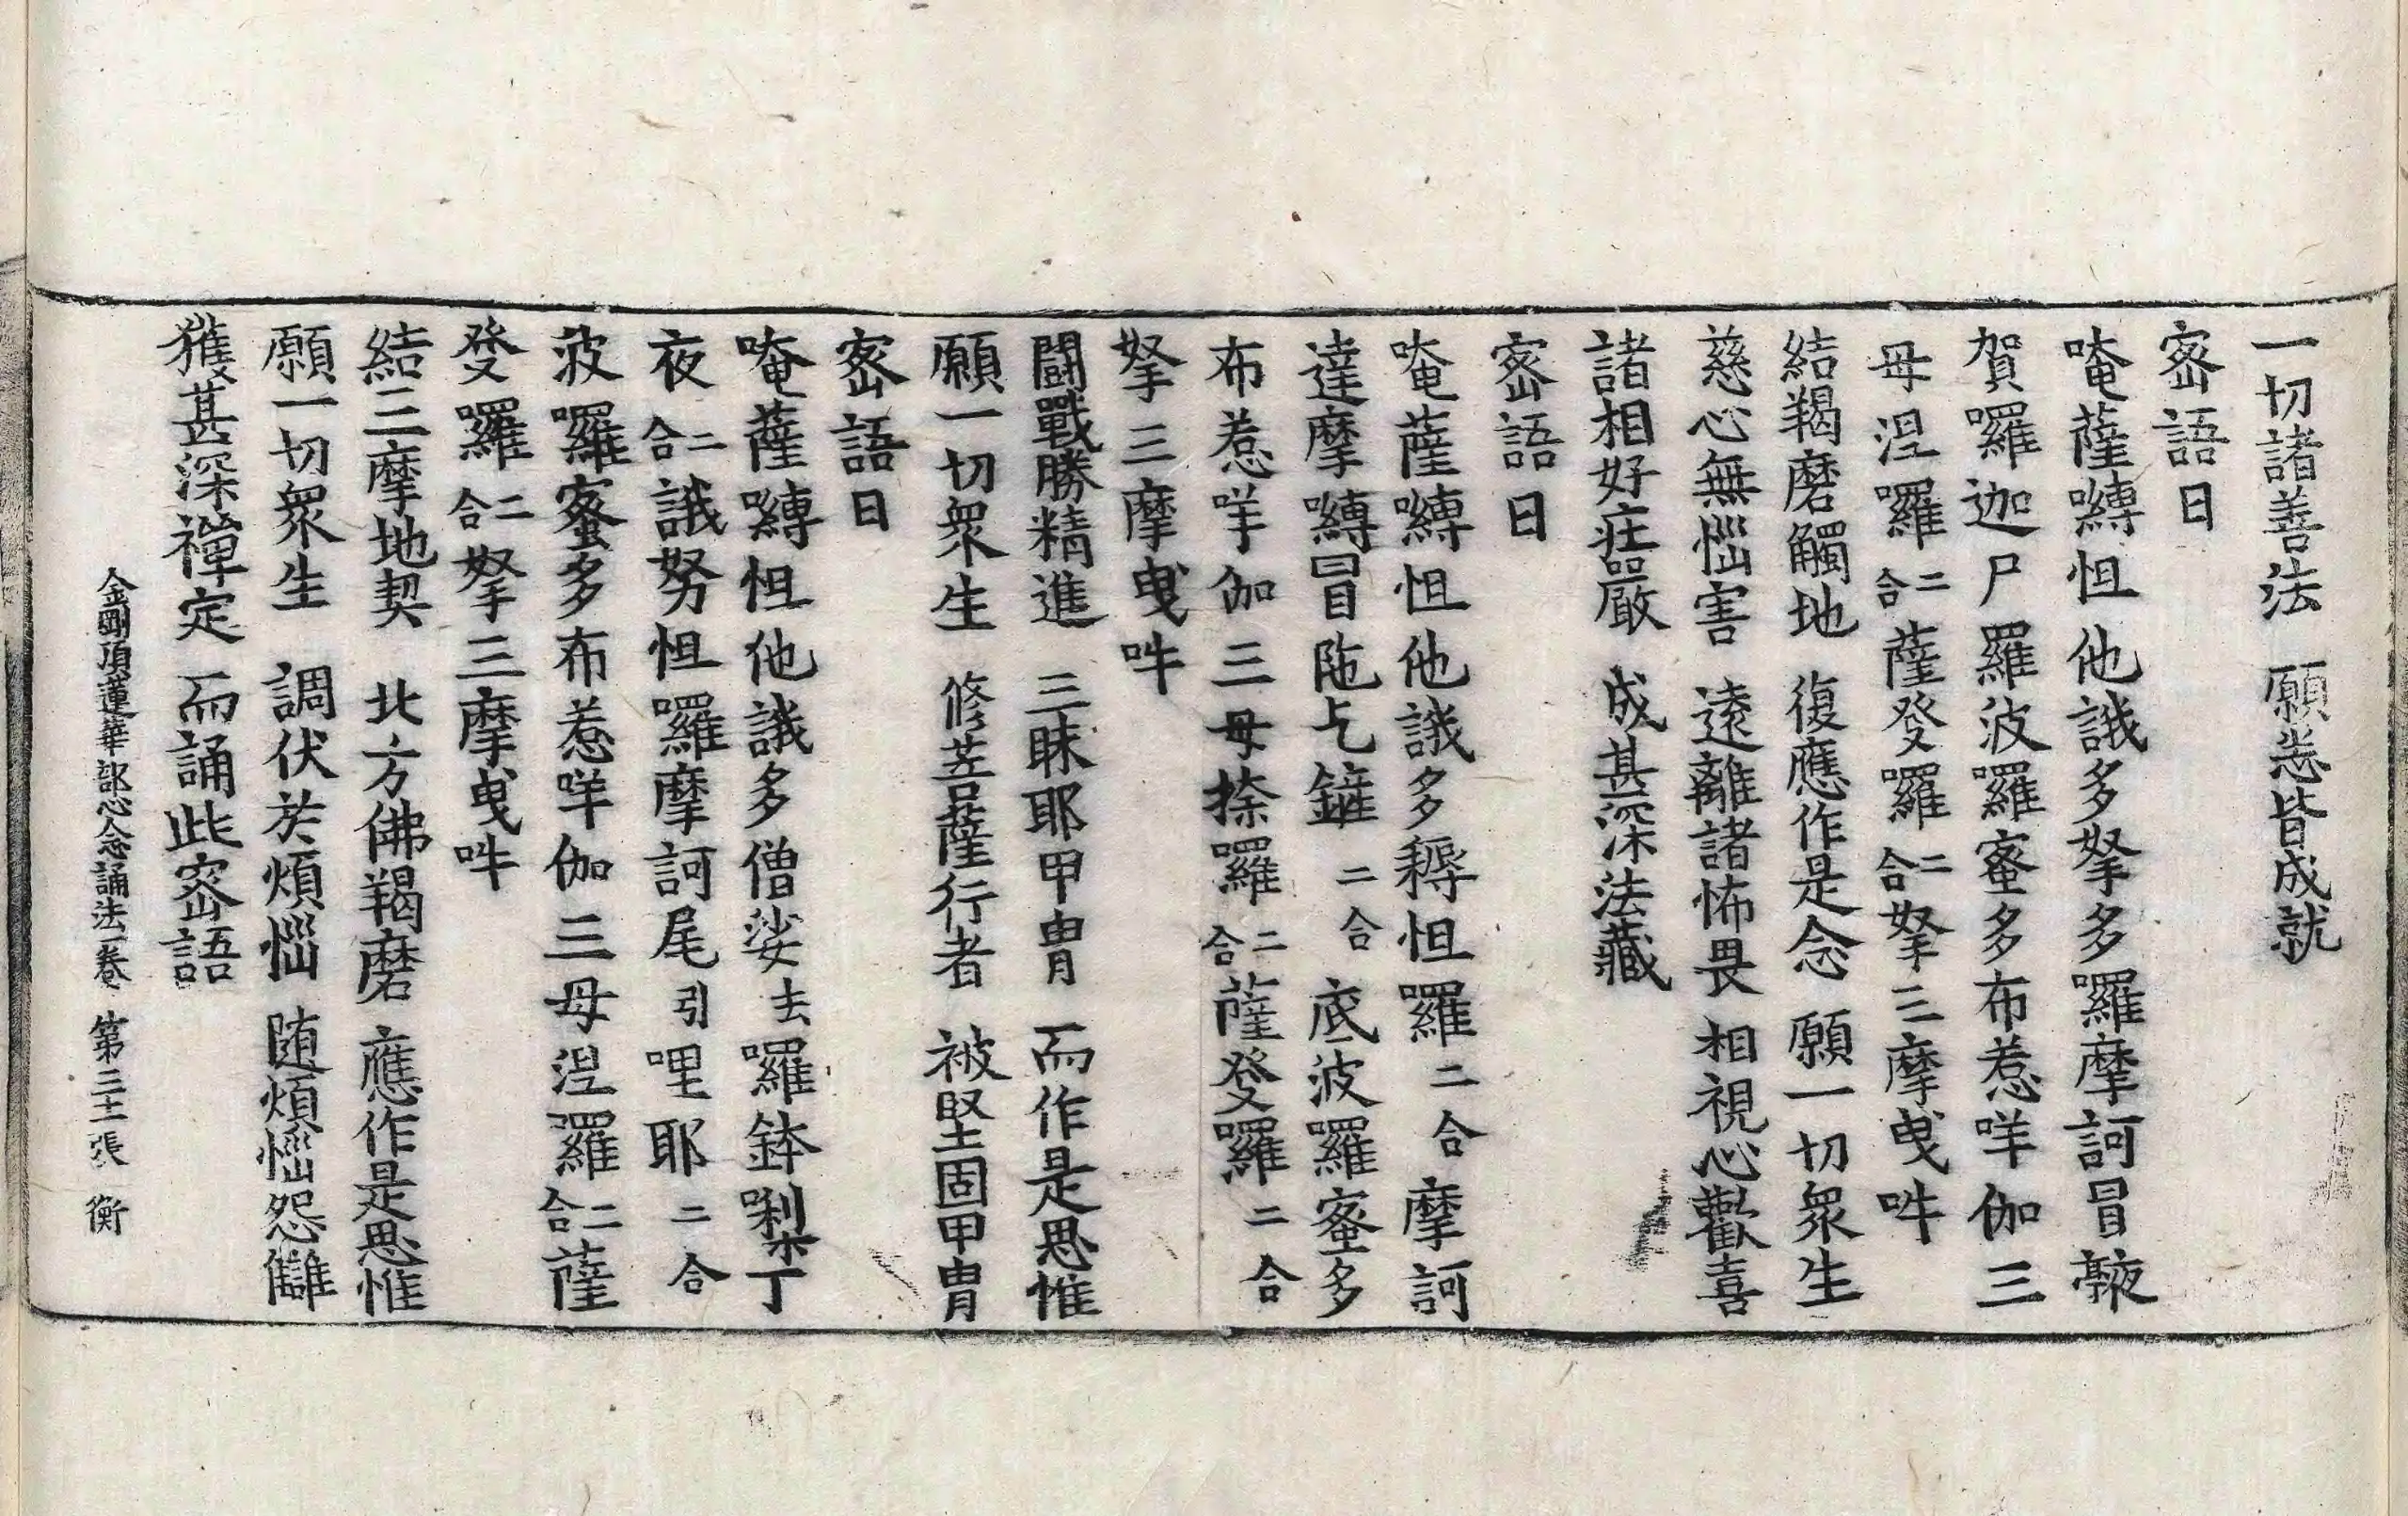 一切諸善法　願悉皆成就
密語曰
唵薩嚩怛他誐多拏多囉摩訶冒𩐿
賀囉迦尸羅波羅蜜多布惹咩伽三
母涅囉二合薩癹囉二合拏三摩曳吽
結羯磨觸地　復應作是念　願一切衆生
慈心無惱害　遠離諸怖畏　相視心歡喜
諸相好莊嚴　成甚深法藏
密語曰
唵薩嚩怛他誐多耨怛羅二合摩訶
達摩嚩冒陁乞鏟二合底波羅蜜多
布惹咩伽三母捺羅二合薩癹囉二合
拏三摩曳吽
闘戰勝精進　三昧耶甲胄　而作是思惟
願一切衆生　修菩薩行者　被堅固甲胄
密語曰
唵薩嚩怛他誐多僧娑去囉鉢㘑丁
夜二合誐努怛囉摩訶尾引哩耶二合
波囉蜜多布惹咩伽三母涅羅二合薩
癹囉二合拏三摩曳吽
結三摩地契　北方佛羯磨　應作是思惟
願一切衆生　調伏於煩惱　随煩惱怨讎
獲甚深禪定　而誦此密語
金剛頂蓮華部心念誦法一卷　第三十一張　衡